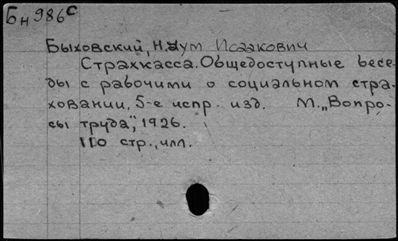 Бн986с
Быховский, Наум Исаакович
Страхкасса. Общедоступные бесе-
ды с рабочими о социальном стра-
ховании, 5-е испр. изд. М. „Вопро-
сы труда", 1926.
110 стр., илл.